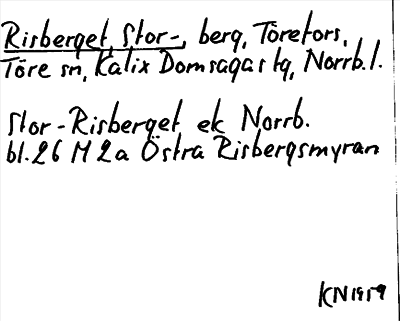 Risberget, Stor-, berg, Törefors,
Töre sn, Kalix Domsagas tg, Norrb. l.
Stor-Risberget ek Norrb.
bl. 26 M 2a Östra Risbergsmyran
KN 1959